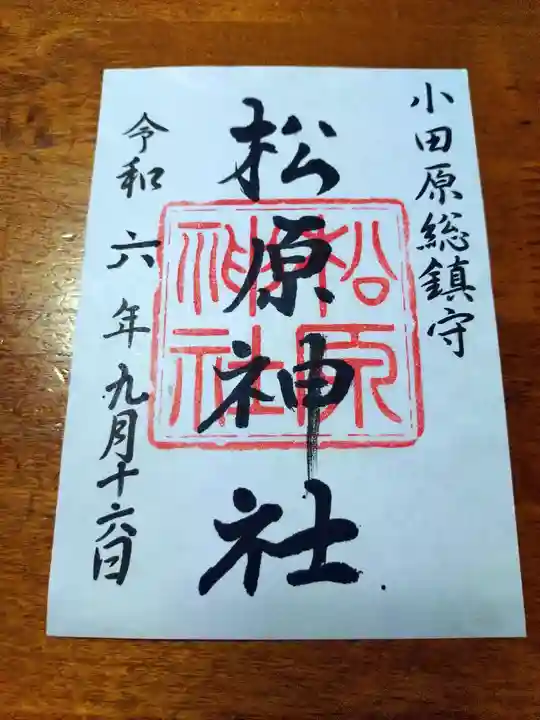 小田原総鎮守
松原神社
松原神社
令和六年九月十六日